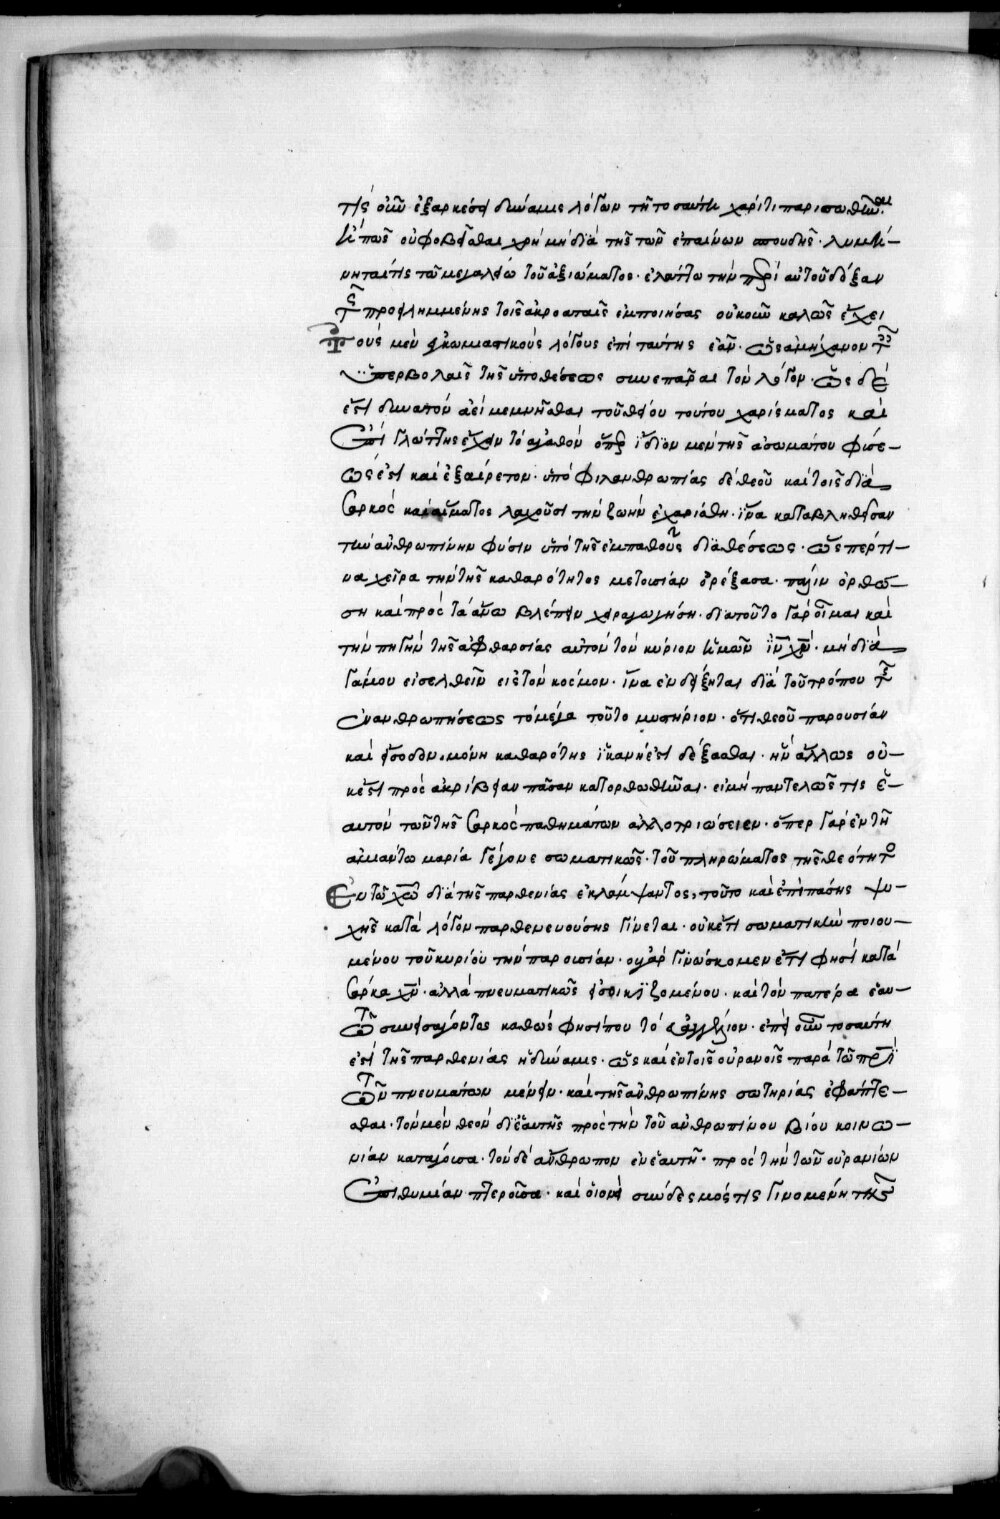 τίς οὖν ἐξαρκέσει δύναμις λόγων τῇ τοσαύτῃ χάριτι παρισωθῆναι·
ἢ πῶς οὐ φοβεῖσθαι χρὴ μὴ διὰ τῆς τῶν ἐπαίνων σπουδῆς· λυμή-
νηταί τις τῷ μεγαλείῳ τοῦ ἀξιώματος· ἐλάττω τὴν περὶ αὐτοῦ δόξαν
τῆς προειλημμένης τοῖς ἀκροαταῖς ἐμποιήσας οὐκοῦν καλῶς ἔχει
τοὺς μὲν ἐγκωμιαστικοὺς λόγους ἐπὶ ταύτης ἐᾶν· ὡς ἀμήχανον τ
ὑπερβολαῖς τῆς ὑποθέσεως συνεπᾶραι τὸν λόγον· ὡς δέ
ἐστι δυνατὸν ἀεὶ μεμνῆσθαι τοῦ θείου τούτου χαρίσματος καὶ
ἐπὶ γλώττης ἔχειν τὸ ἀγαθὸν ὅπερ ἴδιον μὲν τῆς ἀσωμάτου φύσε-
ώς ἐστι καὶ ἐξαίρετον· ὑπὸ φιλανθρωπίας δὲ θεοῦ καὶ τοῖς διὰ
σαρκὸς καὶ αἵματος λαχοῦσι τὴν ζωὴν ἐχαρίσθη· ἵνα καταβληθεῖσαν
τὴν ἀνθρωπίνην φύσιν ὑπὸ τῆς ἐμπαθοῦς διαθέσεως· ὥσπερ τι-
να χεῖρα τὴν τῆς καθαρότητος μετουσίαν ὀρέξασα· πάλιν ὀρθώ-
σῃ καὶ πρὸς τὰ ἄνω βλέπειν χειραγωγήσῃ· διὰ τοῦτο γὰρ οἶμαι καὶ
τὴν πηγὴν τῆς ἀφθαρσίας αὐτὸν τὸν κύριον ἡμῶν ἰν χν· μὴ διὰ
γάμου εἰσελθεῖν εἰς τὸν κόσμον· ἵνα ἐνδείξηται διὰ τοῦ τρόπου τῆς
ἐνανθρωπήσεως τὸ μέγα τοῦτο μυστήριον· ὅτι θεοῦ παρουσίαν
καὶ εἴσοδον μόνη καθαρότης ἱκανή ἐστι δέξασθαι· ἣν ἄλλως οὐ-
κ ἔστι πρὸς ἀκρίβειαν πᾶσαν κατορθωθῆναι· εἰ μὴ παντελῶς τις ἑ-
αυτὸν τῶν τῆς σαρκὸς παθημάτων ἀλλοτριώσειεν· ὅπερ γὰρ ἐν τῇ
ἀμιάντῳ μαρίᾳ γέγονε σωματικῶς· τοῦ πληρώματος τῆς θεότητο
ἐν τῷ χω διὰ τῆς παρθενίας ἐκλάμψαντος, τοῦτο καὶ ἐπὶ πάσης ψυ-
χῆς κατὰ λόγον παρθενευούσης γίνεται· οὐκέτι σωματικὴν ποιου-
μένου τοῦ κυρίου τὴν παρουσίαν· οὐ γὰρ γινώσκομεν ἔτι φησὶ κατὰ
σάρκα χν· ἀλλὰ πνευματικῶς εἰσοικιζομένου· καὶ τὸν πατέρα ἑαυ-
τῷ συνεισάγοντος καθώς φησί που τὸ εὐαγγέλιον· ἐπεὶ οὖν τοσαύτη
ἐστὶ τῆς παρθενίας ἡ δύναμις· ὡς καὶ ἐν τοῖς οὐρανοῖς παρὰ τῷ πρι
τῶν πνευμάτων μένειν· καὶ τῆς ἀνθρωπίνης σωτηρίας ἐφάπτε-
σθαι· τὸν μὲν θεὸν δι ἑαυτῆς πρὸς τὴν τοῦ ἀνθρωπίνου βίου κοινω-
νίαν κατάγουσα· τὸν δὲ ἄνθρωπον ἐν ἑαυτῇ· πρὸς τὴν τῶν οὐρανίων
ἐπιθυμίαν πτεροῦσα· καὶ οἱονεὶ σύνδεσμός τις γινομένη τῆς